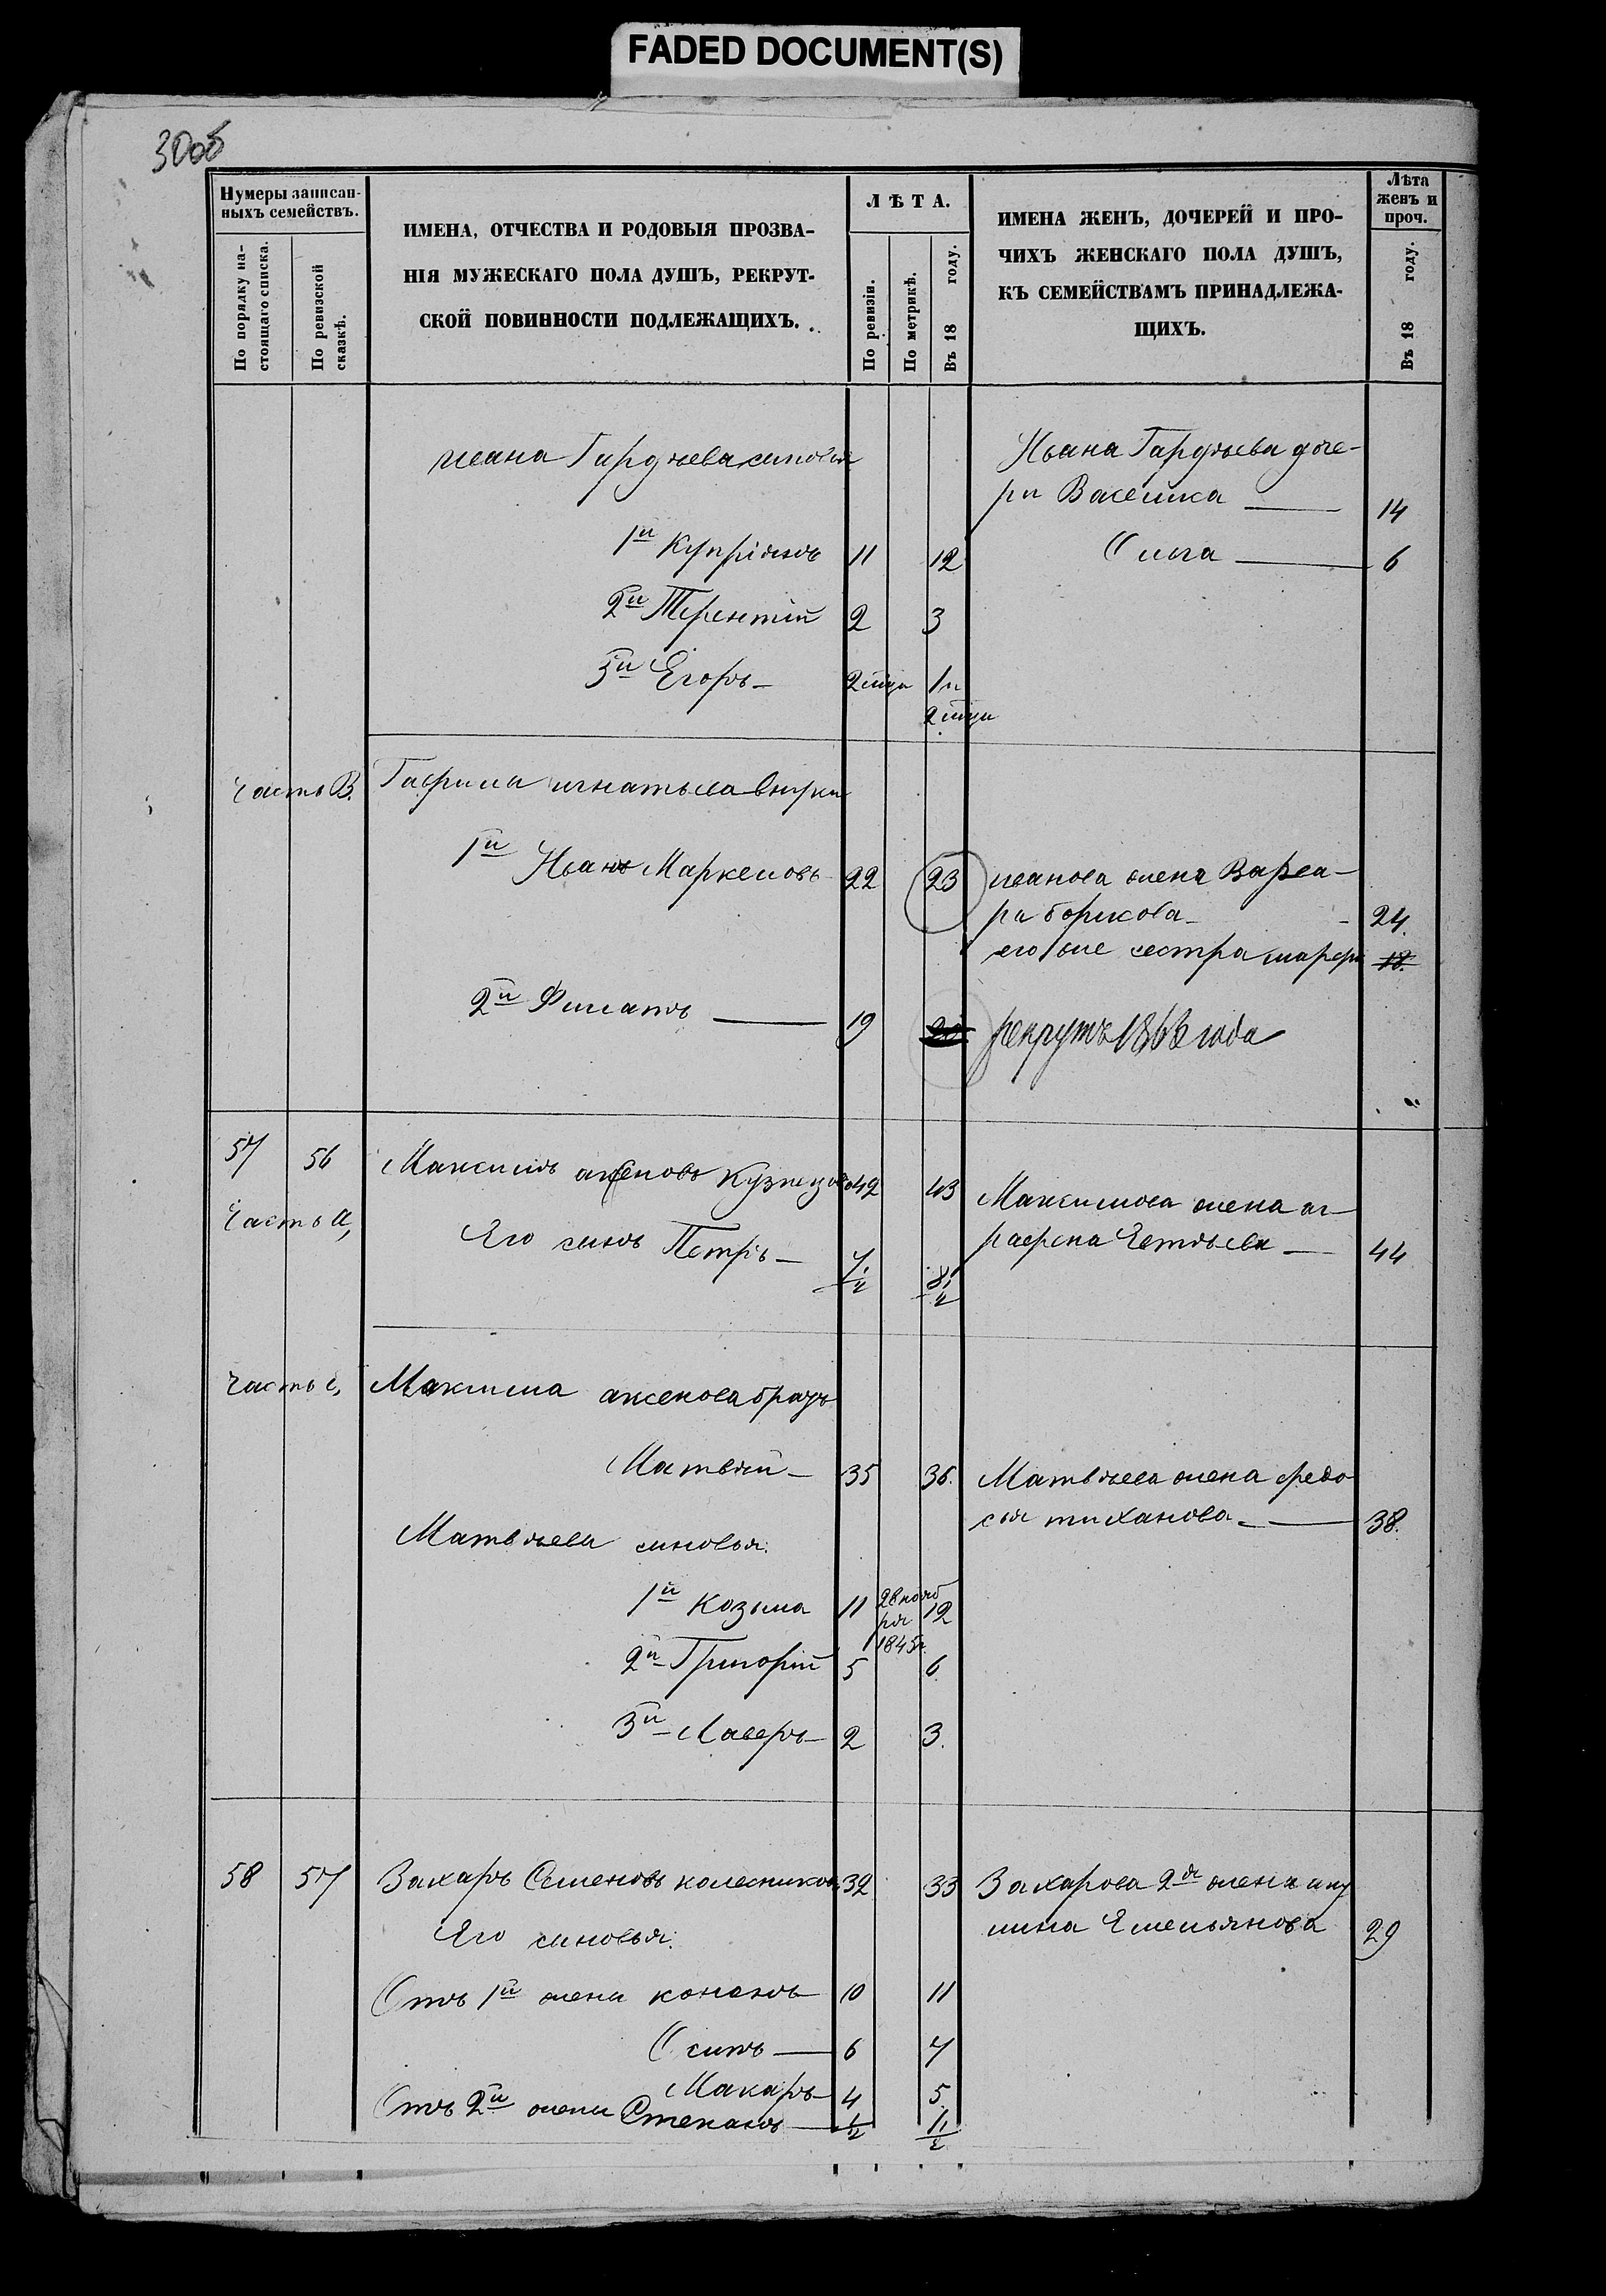 FADED DOCUMENT(S)
30об
Нумеры записан-
ныхъ семействъ.
По порядку на-
стоящаго списка.
По ревизской
сказкѣ.
ИМЕНА, ОТЧЕСТВА И РОДОВЫЯ ПРОЗВА-
НІЯ МУЖЕСКАГО ПОЛА ДУШЪ, РЕКРУТ-
СКОЙ ПОВИННОСТИ ПОДЛЕЖАЩИХЪ.
ЛѢТА.
По ревизіи.
По метрикѣ.
Въ 18 году.
ИМЕНА ЖЕНЪ, ДОЧЕРЕЙ И ПРО-
ЧИХЪ ЖЕНСКАГО ПОЛА ДУШЪ,
КЪ СЕМЕЙСТВАМЪ ПРИНАДЛЕЖА-
ЩИХЪ.
Лѣта
женъ и
проч.
Въ 18 году.
ивана Гардѣева синовья
Ивана Гардѣева доче-
ри Васелиса 14
1й Купріянъ 11 12
Ольга 6
2й Терентій 2 3
3й Егоръ 2 1
2
Часть В. Гаврила игнатьева внуки
1й Иванъ Маркеловъ 22 23 иванова жена Варва-
ра борисова 24.
его же сестра марфа 18.
2й Филатъ 19 20 рекрутъ 1863 года
57 56 Максимъ аксеновъ Кузнецовъ 42 43
Часть а,
Максимова жена аг-
рафена 44
Его синъ Петръ 7 1/2 8 1/2
Часть Максима аксенова братъ
Матвѣй 35 36.
Матвѣева жена федо
сья тиханова 38.
Матвѣева синовья.
1й Козьма 11 28 нояб
ря 1845г. 12
2й Григорій 5 6
3й Лаверъ 2 3.
58 57 Захаръ Семеновъ колесниковъ 32 33 Захарова 2я жена аку
лина Емельянова 29
Его синовья.
Отъ 1й жени кононъ 10 11
Осипъ 6 7
Макаръ 4 5
Отъ 2й жени Степанъ 1/2 1 1/2